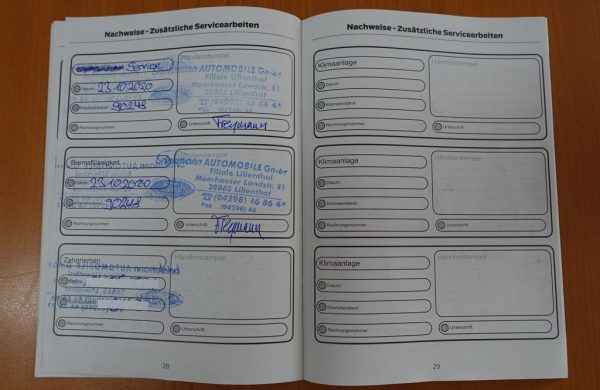 Nachweise - Zusätzliche Servicearbeiten
Service
Händlerstempel
Datum: 23.10.2020
Kilometerstand: 90248
Rechnungsnummer:
brinkmann AUTOMOBILE GmbH
Filiale Lilienthal
Moorhauser Landstr. 51
28865 Lilienthal
(04298) 46 86
Unterschrift:
Bremsflüssigkeit
Händlerstempel
Datum: 23.10.2020
Kilometerstand: 90248
Rechnungsnummer:
brinkmann AUTOMOBILE GmbH
Filiale Lilienthal
Moorhauser Landstr. 51
28865 Lilienthal
(04298) 46 86
Unterschrift:
Zahnriemen
Händlerstempel
Rechnungsnummer:
Unterschrift:
28
Nachweise - Zusätzliche Servicearbeiten
Klimaanlage
Händlerstempel
Datum:
Kilometerstand:
Rechnungsnummer:
Unterschrift:
Klimaanlage
Händlerstempel
Datum:
Kilometerstand:
Rechnungsnummer:
Unterschrift:
Klimaanlage
Händlerstempel
Datum:
Kilometerstand:
Rechnungsnummer:
Unterschrift:
29